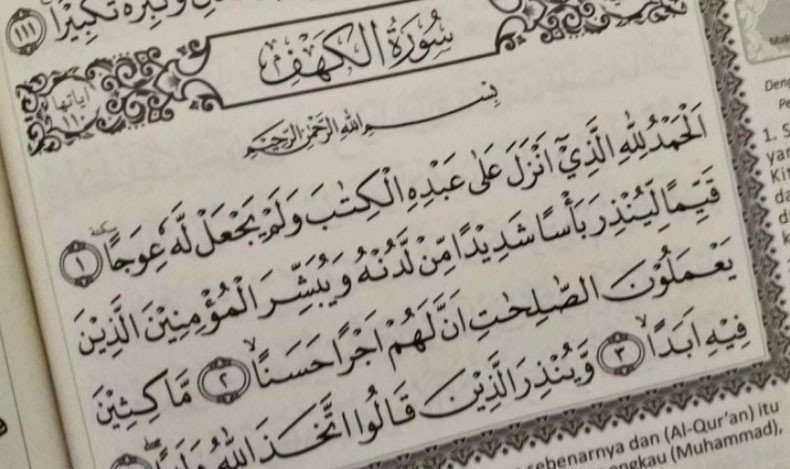 وَكَبِّرْهُ تَكْبِيْرًا ۝١١١
سُوْرَةُ الْكَهْفِ
اٰيَاتُهَا ١١٠
بِسْمِ اللّٰهِ الرَّحْمٰنِ الرَّحِيْمِ
اَلْحَمْدُ لِلّٰهِ الَّذِيْٓ اَنْزَلَ عَلٰى عَبْدِهِ الْكِتٰبَ وَلَمْ يَجْعَلْ لَّهٗ عِوَجًا ۜ ۝١
قَيِّمًا لِّيُنْذِرَ بَأْسًا شَدِيْدًا مِّنْ لَّدُنْهُ وَيُبَشِّرَ الْمُؤْمِنِيْنَ الَّذِيْنَ
يَعْمَلُوْنَ الصّٰلِحٰتِ اَنَّ لَهُمْ اَجْرًا حَسَنًاۙ ۝٢ مَّاكِثِيْنَ
فِيْهِ اَبَدًاۙ ۝٣ وَّيُنْذِرَ الَّذِيْنَ قَالُوا اتَّخَذَ اللّٰهُ وَلَدًا
1.
sebenarnya dan (Al-Qur'an) itu
engkau (Muhammad),